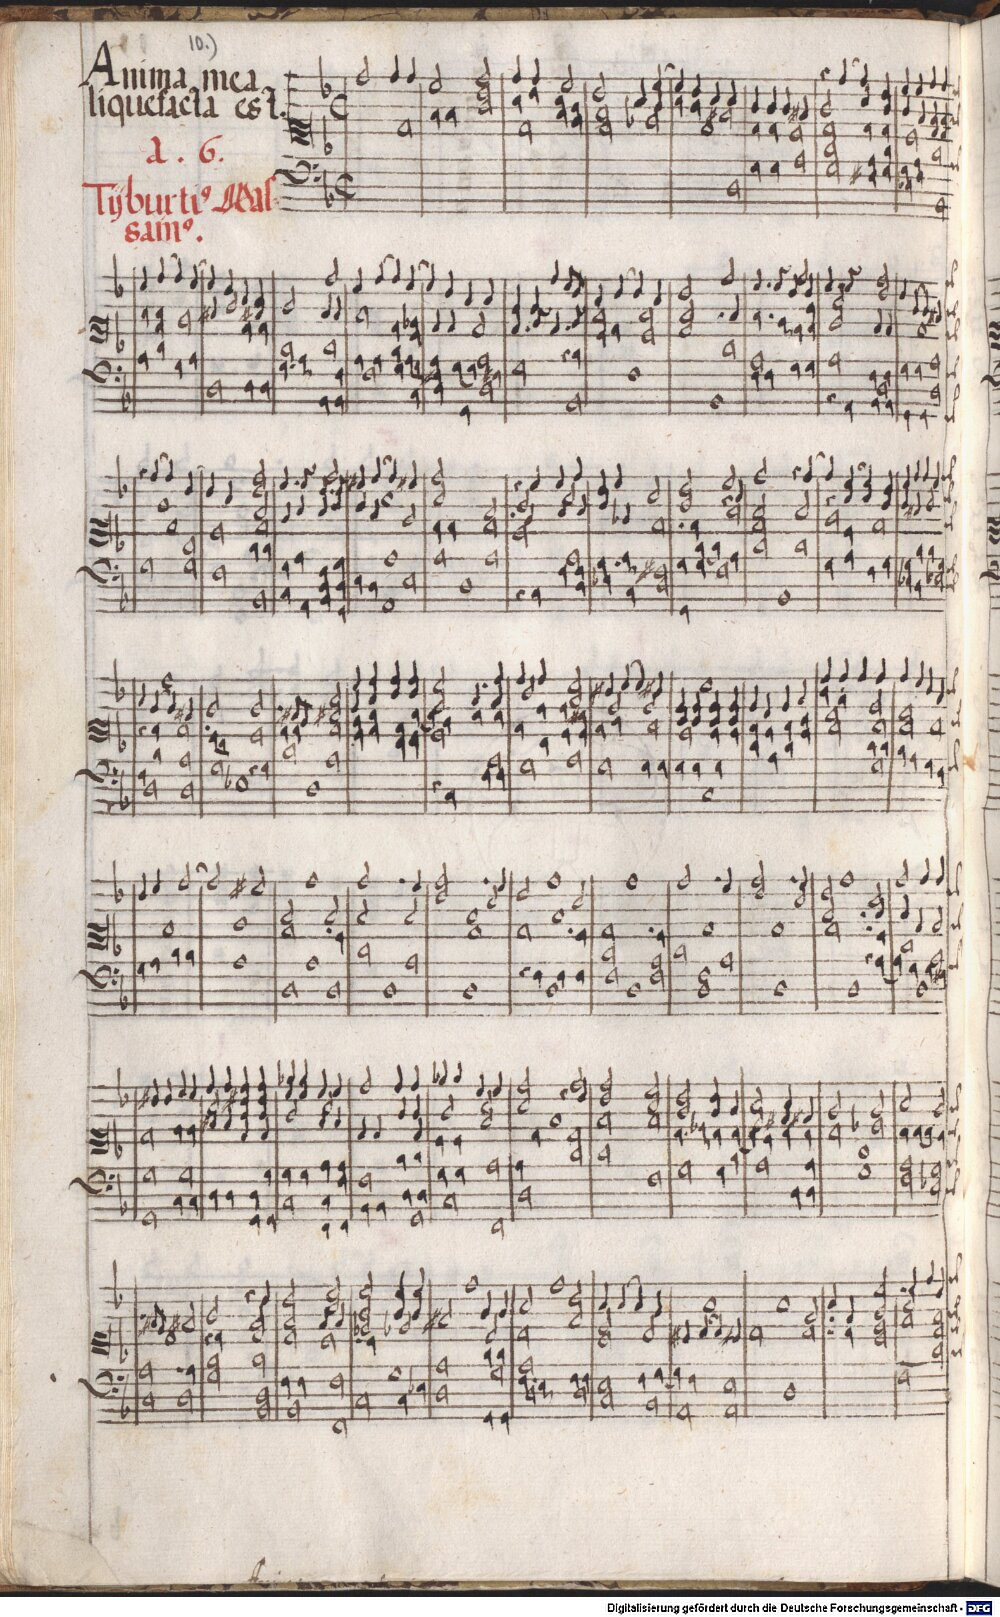 10.)
Anima mea
liquefacta est.
a. 6.
Tyburti⁹ Mas-
sain⁹.
Digitalisierung gefördert durch die Deutsche Forschungsgemeinschaft - DFG